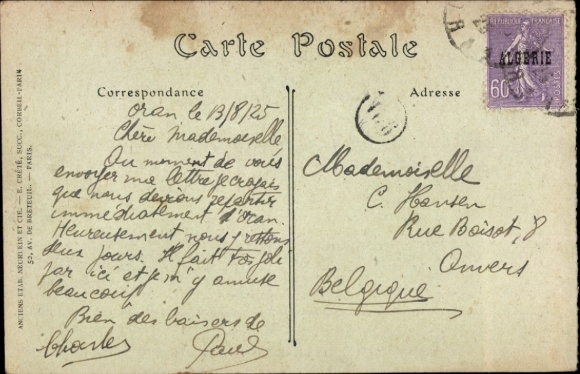 Carte Postale
Correspondance
Adresse
RÉPUBLIQUE FRANÇAISE
ALGÉRIE
POSTES
60
Oran le 13/8/25
Chère Mademoiselle
Au moment de vous
envoyer ma lettre je croyais
que nous devions repartir
immédiatement d'Oran.
Heureusement nous y restons
deux jours. Il fait très joli
par ici et je m'y amuse
beaucoup
Bien des baisers de
Charles Paul
Mademoiselle
C. Hansen
Rue Boisot, 8
Anvers
Belgique
ANCIENS ETAB. NEURDEIN ET CIE. — E. CRÉTÉ, SUCC., CORBEIL-PARIS
52, AV. DE BRETEUIL. — PARIS.